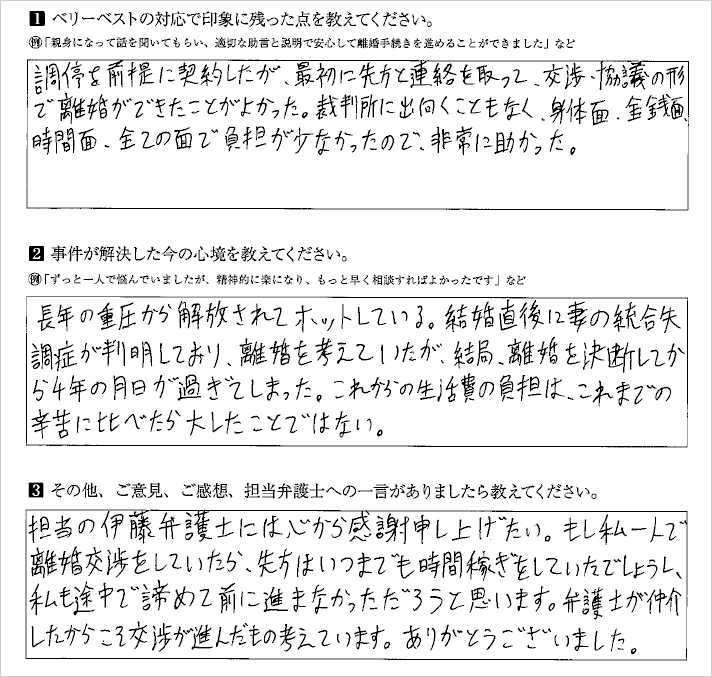 1 ベリーベストの対応で印象に残った点を教えてください。
例「親身になって話を聞いてもらい、適切な助言と説明で安心して離婚手続きを進めることができました」など
調停を前提に契約したが、最初に先方と連絡を取って、交渉・協議の形
で離婚ができたことがよかった。裁判所に出向くこともなく、身体面、金銭面、
時間面、全ての面で負担が少なかったので、非常に助かった。
2 事件が解決した今の心境を教えてください。
例「ずっと一人で悩んでいましたが、精神的に楽になり、もっと早く相談すればよかったです」など
長年の重圧から解放されてホットしている。結婚直後に妻の統合失
調症が判明しており、離婚を考えていたが、結局、離婚を決断してか
ら4年の月日が過ぎてしまった。これからの生活費の負担は、これまでの
辛苦に比べたら大したことではない。
3 その他、ご意見、ご感想、担当弁護士への一言がありましたら教えてください。
担当の伊藤弁護士には心から感謝申し上げたい。もし私一人で
離婚交渉をしていたら、先方はいつまでも時間稼ぎをしていたでしょうし、
私も途中で諦めて前に進まなかっただろうと思います。弁護士が仲介
したからこそ交渉が進んだもの考えています。ありがとうございました。